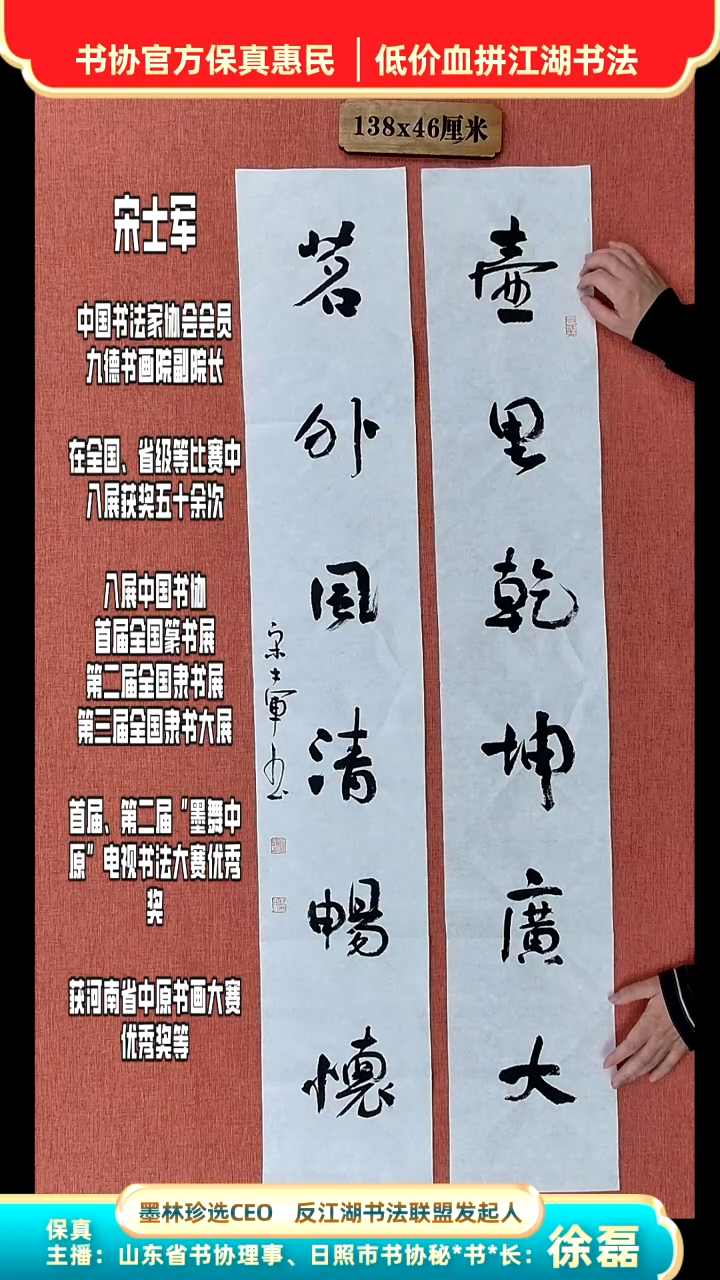 书协官方保真惠民｜低价血拼江湖书法
138x46厘米
宋士军
中国书法家协会会员
九德书画院副院长
在全国、省级等比赛中
入展获奖五十余次
入展中国书协
首届全国篆书展
第二届全国隶书展
第三届全国隶书大展
首届、第二届“墨舞中
原”电视书法大赛优秀
奖
获河南省中原书画大赛
优秀奖等
壶里乾坤廣大
茗外风清暢懷
宋士軍书
墨林珍选CEO 反江湖书法联盟发起人
保真
主播：山东省书协理事、日照市书协秘*书*长：徐磊